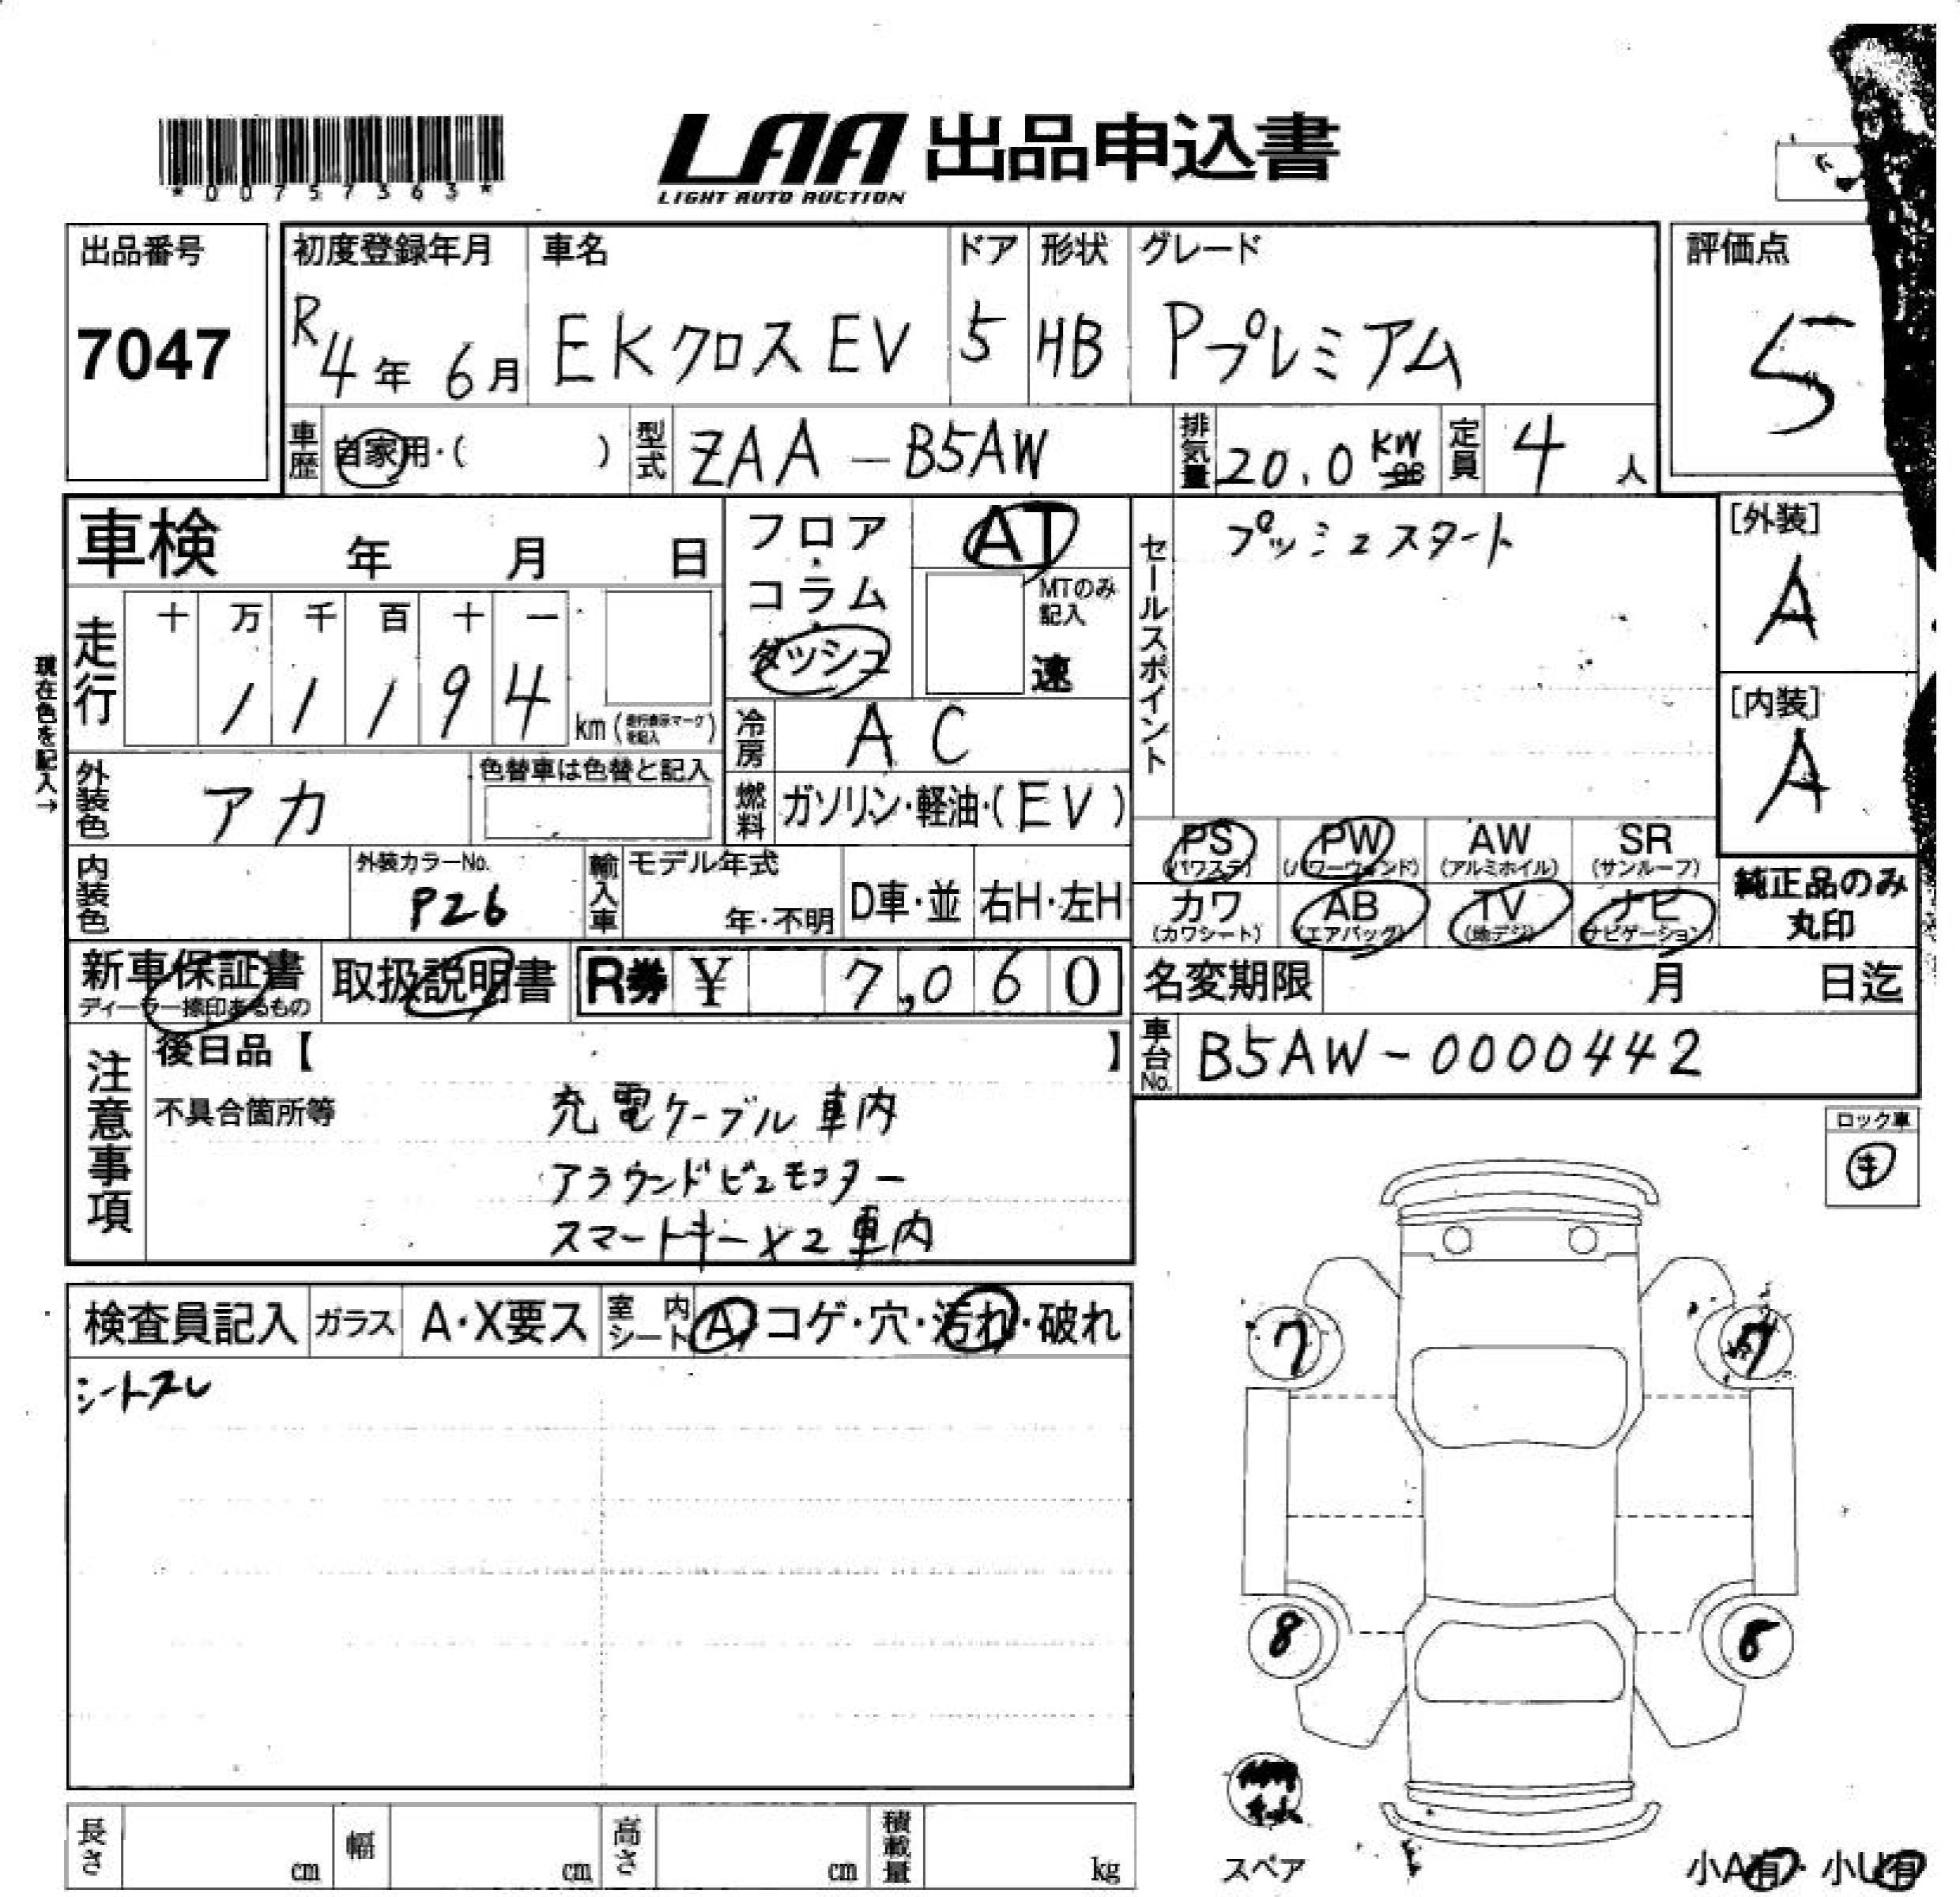 *00757363*
LAA 出品申込書
LIGHT AUTO AUCTION
出品番号
7047
初度登録年月
R4年 6月
車名
EKクロスEV
ドア
5
形状
HB
グレード
Pプレミアム
評価点
5
車歴
自家用・( )
型式
ZAA-B5AW
排気量
20.0 KW
定員
4人
車検 年 月 日
フロア・コラム・ダッシュ
AT
MTのみ記入
速
セールスポイント
プッシュスタート
[外装]
A
[内装]
A
現在色を記入→
走行
十 万 千 百 十 一
1 1 1 9 4
km (走行表示マークを記入)
冷房
AC
外装色
アカ
色替車は色替と記入
燃料
ガソリン・軽油・(EV)
PS (パワステ)
PW (パワーウィンド)
AW (アルミホイル)
SR (サンルーフ)
カワ (カワシート)
AB (エアバッグ)
TV (地デジ)
ナビ (ナビゲーション)
純正品のみ丸印
内装色
外装カラーNo.
P26
輸入車
モデル年式
年・不明
D車・並
右H・左H
新車保証書
ディーラー捺印あるもの
取扱説明書
R券 ¥ 7,060
名変期限 月 日迄
車台No.
B5AW-0000442
注意事項
後日品【 】
不具合箇所等
充電ケーブル車内
アラウンドビュモニター
スマートキー×2車内
ロック車
検査員記入
ガラス
A・X要ス
室内シート
A コゲ・穴・汚れ・破れ
シートスレ
7
8
8
スペア
長さ cm
幅 cm
高さ cm
積載量 kg
小A有・小U有